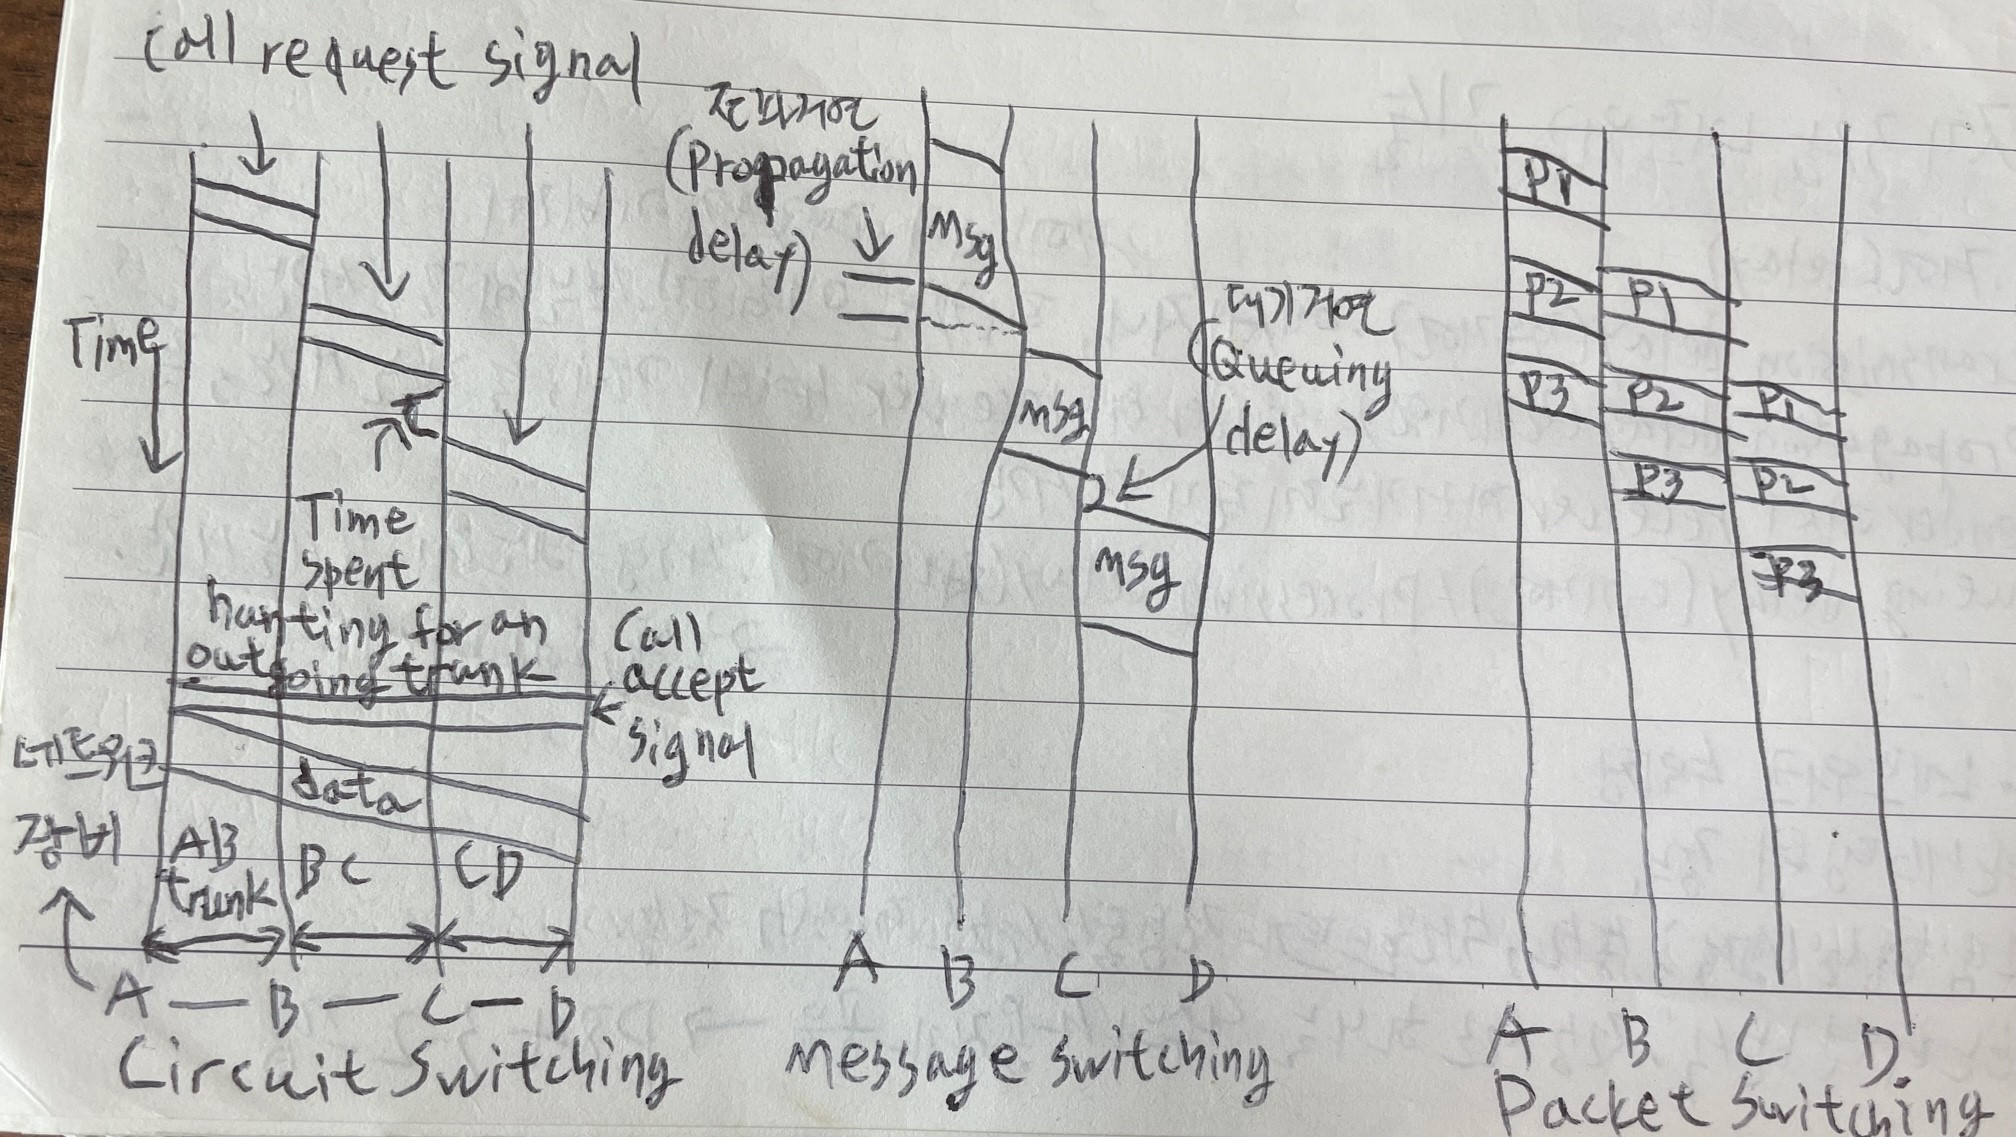 Call request signal
Time
Time
spent
hunting for an
outgoing trunk
Call
accept
signal
data
네트워크
장비
AB
trunk
BC
CD
A — B — C — D
Circuit Switching
전파지연
(Propagation
delay)
Msg
msg
msg
대기지연
(Queuing
delay)
A B C D
Message Switching
P1
P2 P1
P3 P2 P1
P3 P2
P3
A B C D
Packet Switching